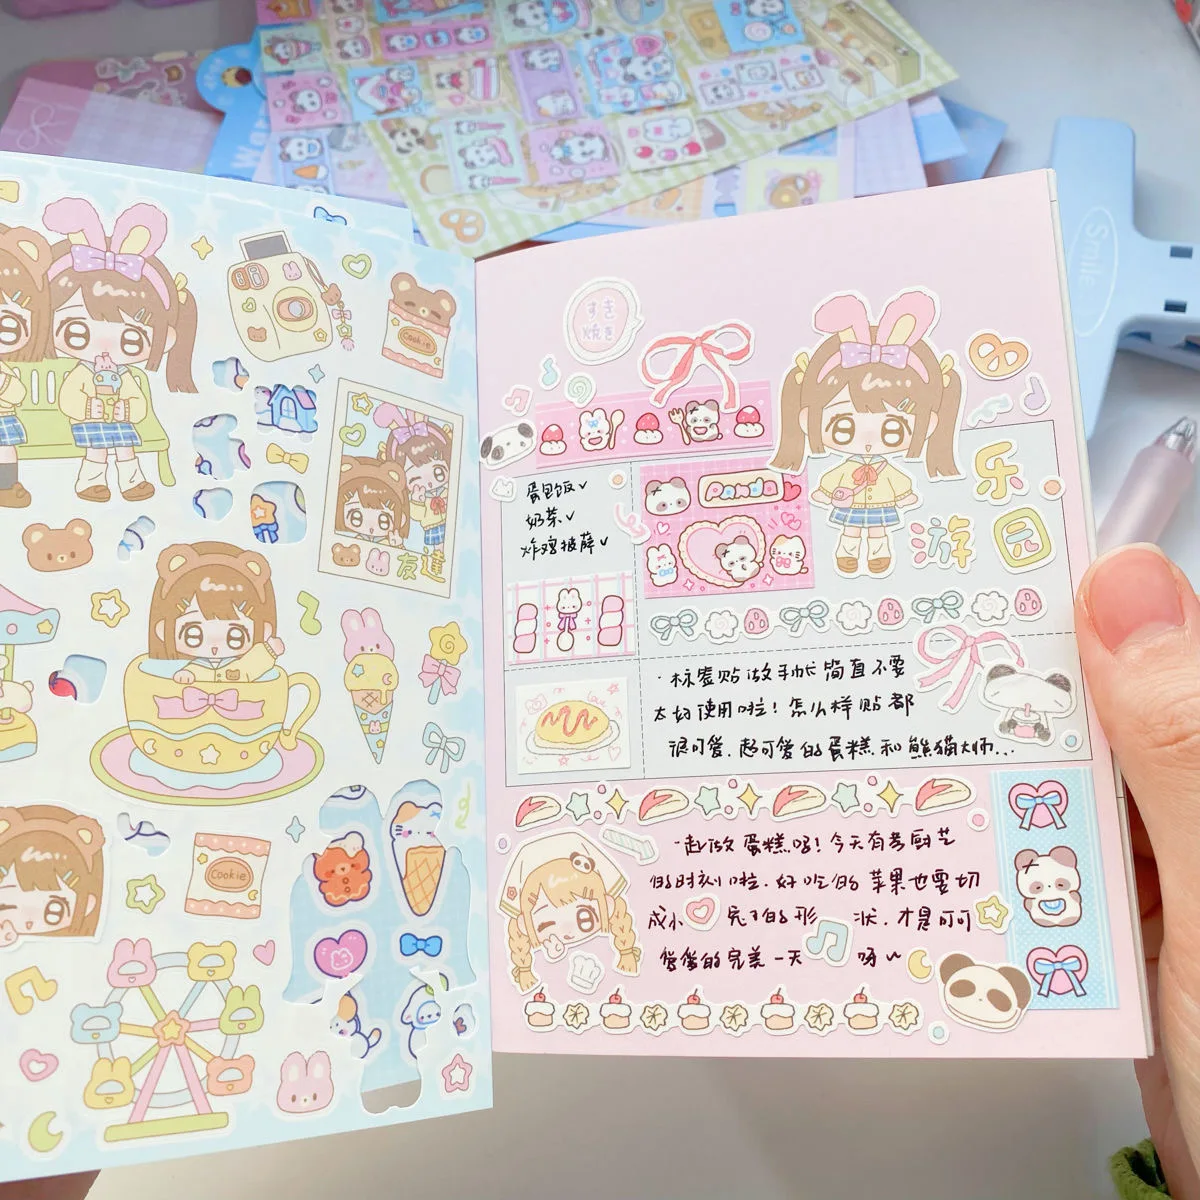 Cookie
友達
Cookie
すき
焼き
Panda
乐
游园
蛋包饭✓
奶茶✓
炸鸡披萨✓
·标签贴做手帐简直不要
太好使用啦!怎么样贴都
很可爱.超可爱的蛋糕和熊猫大师...
love
·起做蛋糕吧!今天有考厨艺
的时刻啦.好吃的苹果也要切
成小 完了的形 状.才是可可
爱爱的完美一天 呀~
Smile